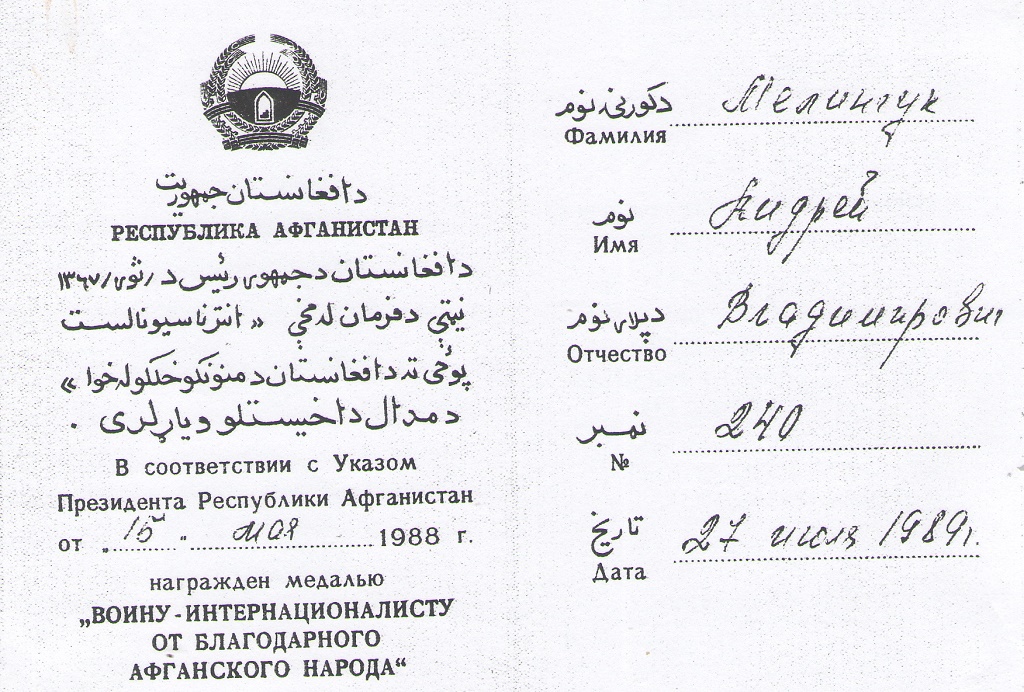 دافغانستان جمهوریت
РЕСПУБЛИКА АФГАНИСТАН
دافغانستان دجمهوری رئیس د /ثور/ ۱۳۶۷
نیټې دفرمان له مخې « انترناسیونالست
پوځی ته دافغانستان دمنونکو خلکو له خوا »
د مدال داخیستلو ویاړ لری .
В соответствии с Указом
Президента Республики Афганистан
от „15“ мая 1988 г.
награжден медалью
„ВОИНУ-ИНТЕРНАЦИОНАЛИСТУ
ОТ БЛАГОДАРНОГО
АФГАНСКОГО НАРОДА“
دکورنی نوم
Фамилия Мелингук
نوم
Имя Андрей
دپلار نوم
Отчество Владимирович
نمبر
№ 240
تاریخ
Дата 27 июля 1989г.